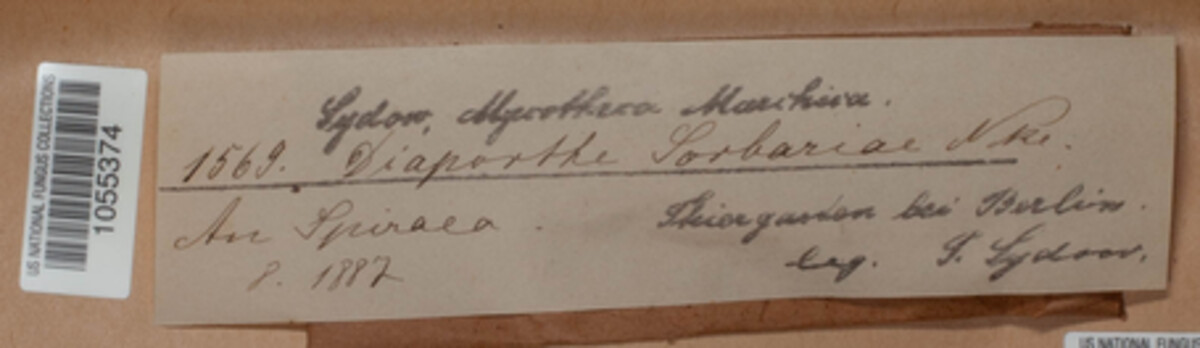 US NATIONAL FUNGUS COLLECTIONS
1055374
Sydow, Mycotheca Marchica.
1569. Diaporthe Sorbariae Nke.
An Spiraea.
Thiergarten bei Berlin.
8. 1887
leg. P. Sydow.
US NATIONAL FUNGUS